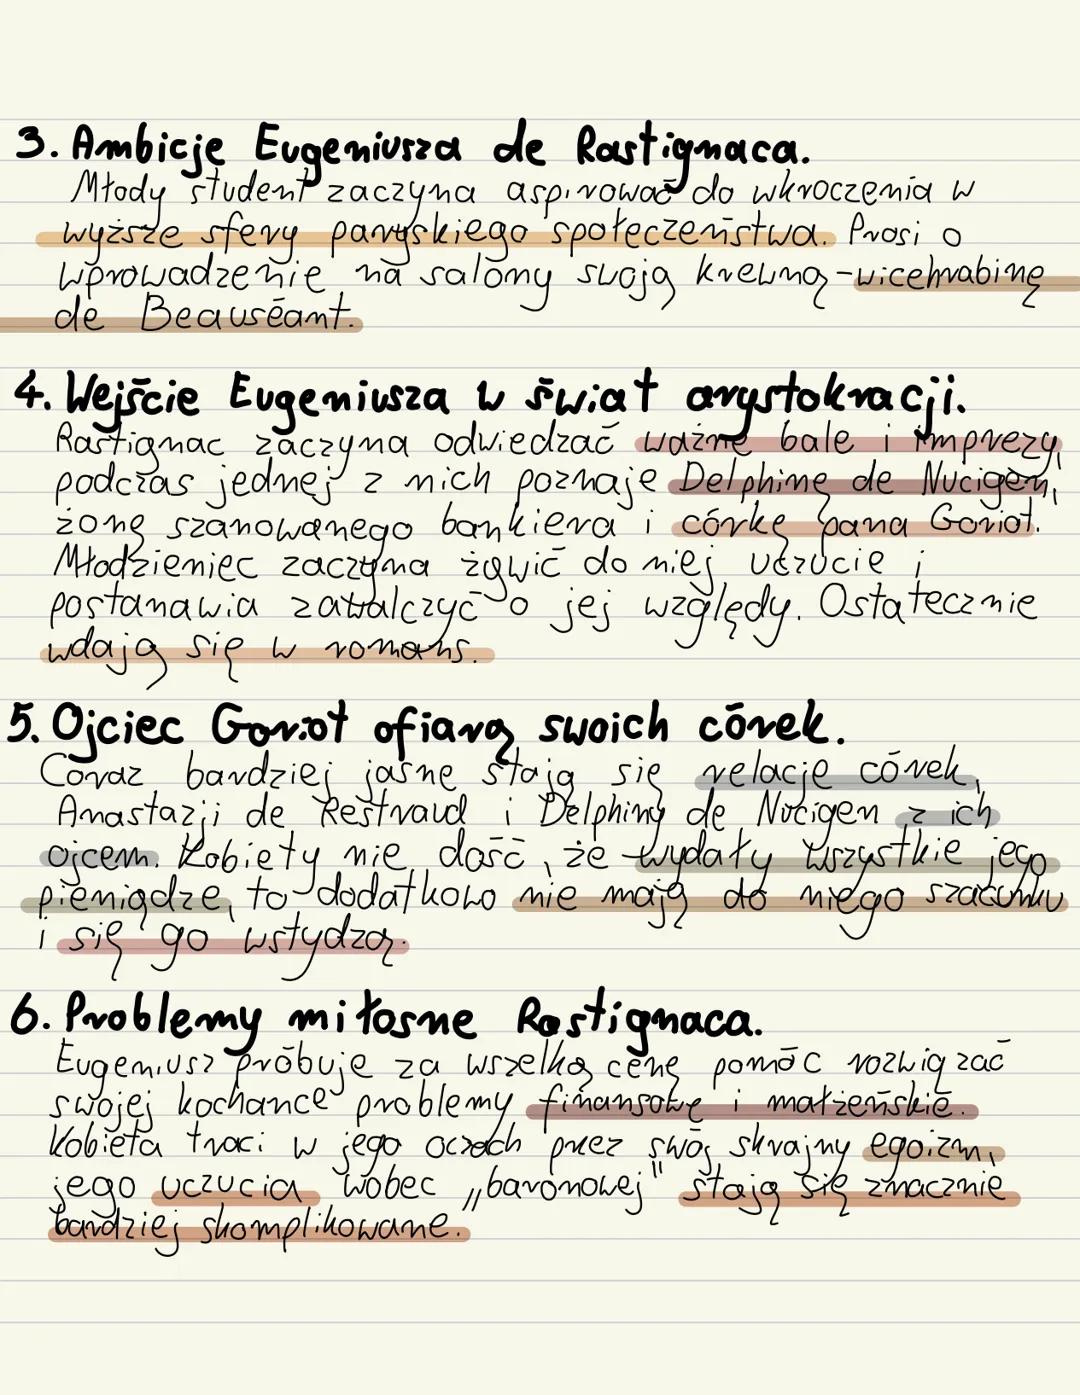 3. Ambicje Eugeniusza de Rastignaca.
Młody student zaczyna aspirować do wkroczenia w
wyższe sfery paryskiego społeczeństwa. Prosi o
wprowadzenie na salony swoją krewną - wicehrabinę
de Beauséant.
4. Wejście Eugeniusza w świat arystokracji.
Rastignac zaczyna odwiedzać ważne bale i imprezy,
podczas jednej z nich poznaje Delphinę de Nucigen,
żonę szanowanego bankiera i córkę pana Goriot.
Młodzieniec zaczyna żywić do niej uczucie i
postanawia zawalczyć o jej względy. Ostatecznie
wdają się w romans.
5. Ojciec Goriot ofiarą swoich córek.
Coraz bardziej jasne stają się relacje córek,
Anastazji de Restraud i Delphiny de Nucigen z ich
ojcem. Kobiety nie dość, że wydały wszystkie jego
pieniądze, to dodatkowo nie mają do niego szacunku
i się go wstydzą.
6. Problemy miłosne Rastignaca.
Eugeniusz próbuje za wszelką cenę pomóc rozwiązać
swojej kochance problemy finansowe i małżeńskie.
Kobieta traci w jego oczach przez swój skrajny egoizm,
jego uczucia wobec „baronowej" stają się znacznie
bardziej skomplikowane.